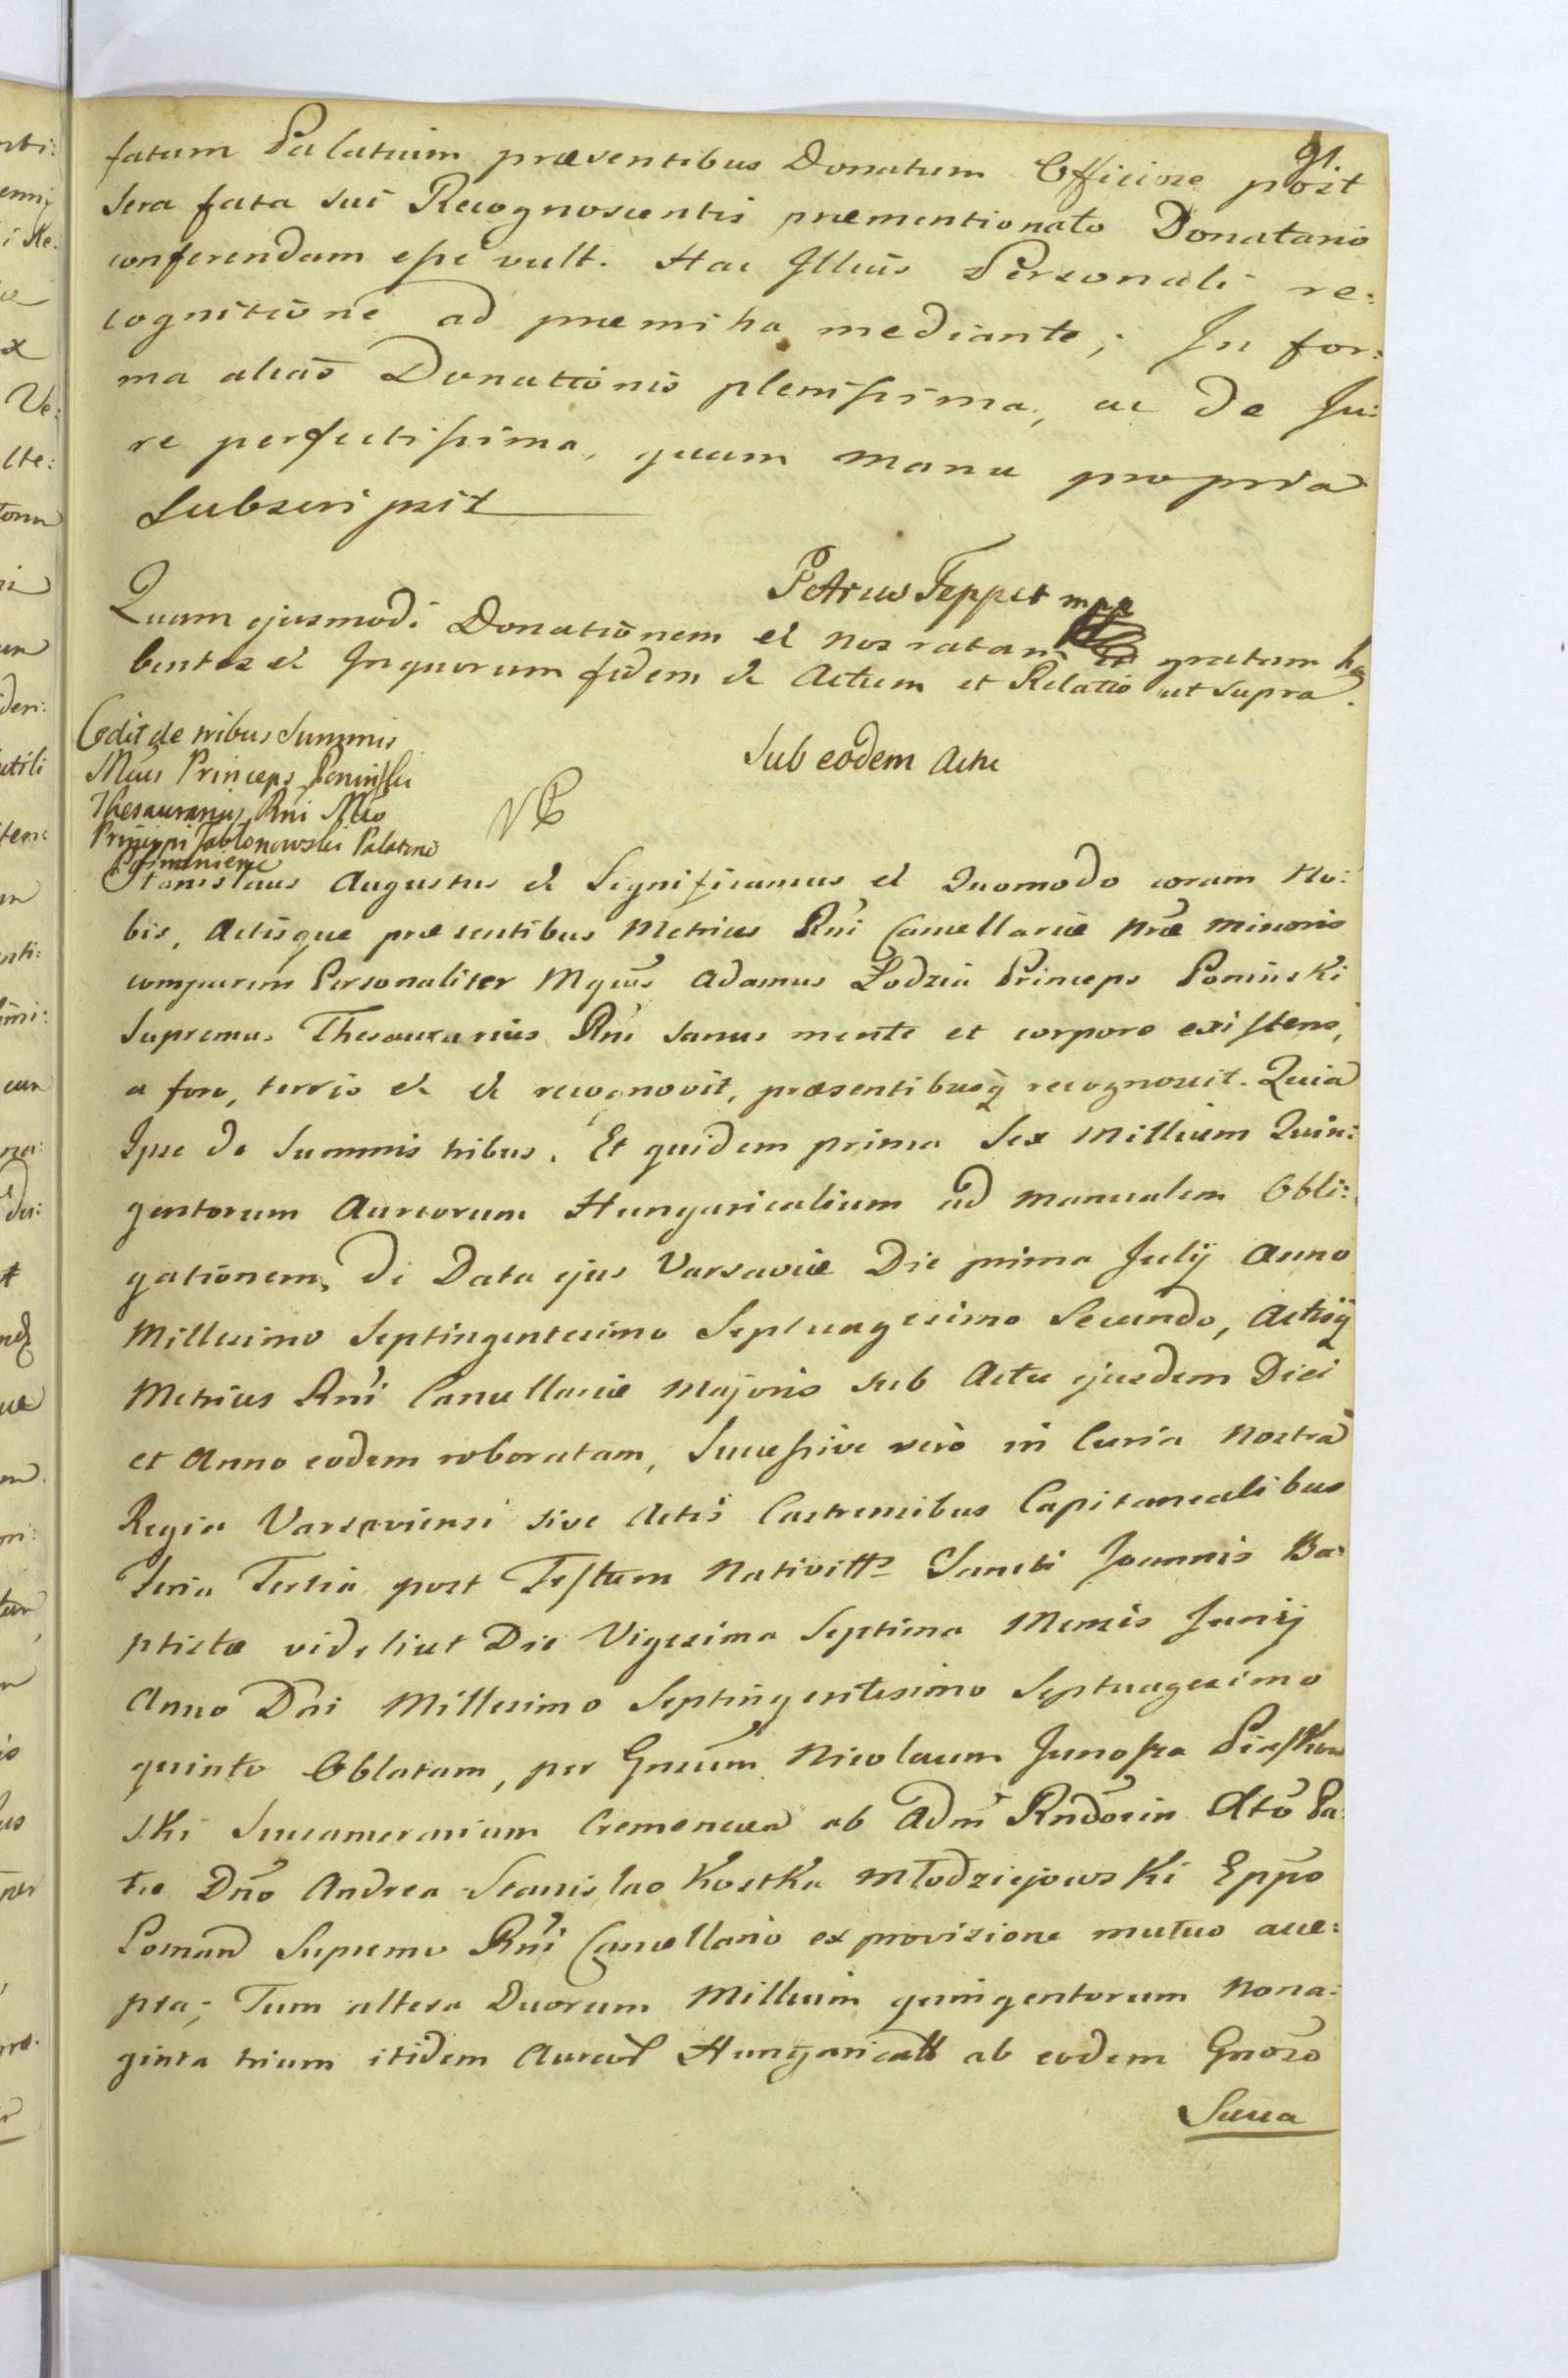 91.
fatum Palatium præsentibus Donatum Officiose post
sera fata sui Recognoscentis præmentionato Donatario
conferendam esse vult. Hac Illius Personali re:
cognitione ad præmissa mediante; In for:
ma alias Donationis plenissima, ac de Ju:
re perfectissima, quam manu propria
Subscripsit
Petrus Tepper mpp
Quam ejusmodi Donationem et nos ratam et gratam ha
bentes et In quorum fidem et Actum et Relatio ut supra.
Cedit de tribus Summis
Mcus Princeps Poninski
Thesaurarius Rni Mco
Principi Jabłonowski Palatino
Posnaniensi
Sub eodem Actu
Stanislaus Augustus et Significamus et Quomodo coram No:
bis, Actisque præsentibus Metrices Rni Cancellariæ nræ minoris
comparens Personaliter Mgcus Adamus Łodzia Princeps Poninski
Supremus Thesaurarius Rni sanus mente et corpore existens,
a foro, terris et et recognovit, præsentibusq recognoscit. Quia
Ipse de Summis tribus. Et quidem prima Sex Millium Quin:
gentorum Aureorum Hungaricalium ad manualem Obli:
gationem, de Data ejus Varsaviæ Die prima Julij Anno
Millesimo Septingentesimo Septuagesimo Secundo, Actisq
Metrices Rni Cancellariæ Majoris sub Actu ejusdem Diei
et Anno eodem roboratam, Successive vero in Curia Nostra
Regia Varsaviensi sive Actis Castrensibus Capitanealibus
Feria Tertia post Festum Nativitts Sancti Joannis Ba:
ptistæ videlicet Die Vigesima Septima Mensis Junij
Anno Dni Millesimo Septingentesimo Septuagesimo
quinto Oblatam, per Gnsum Nicolaum Junosza Piaskow
ski Succamerarium Cremenecen ab Adm Rndosin Xto Pa:
tre Dno Andrea Stanislao Kostka Młodziejowski Eppo
Posnan Supremo Rni Cancellario ex provisione mutuo acce:
pta; Tum altera Duorum Millium quingentorum Nona:
ginta trium itidem Aureor Hungaricall ab eodem Gnoso
Succa